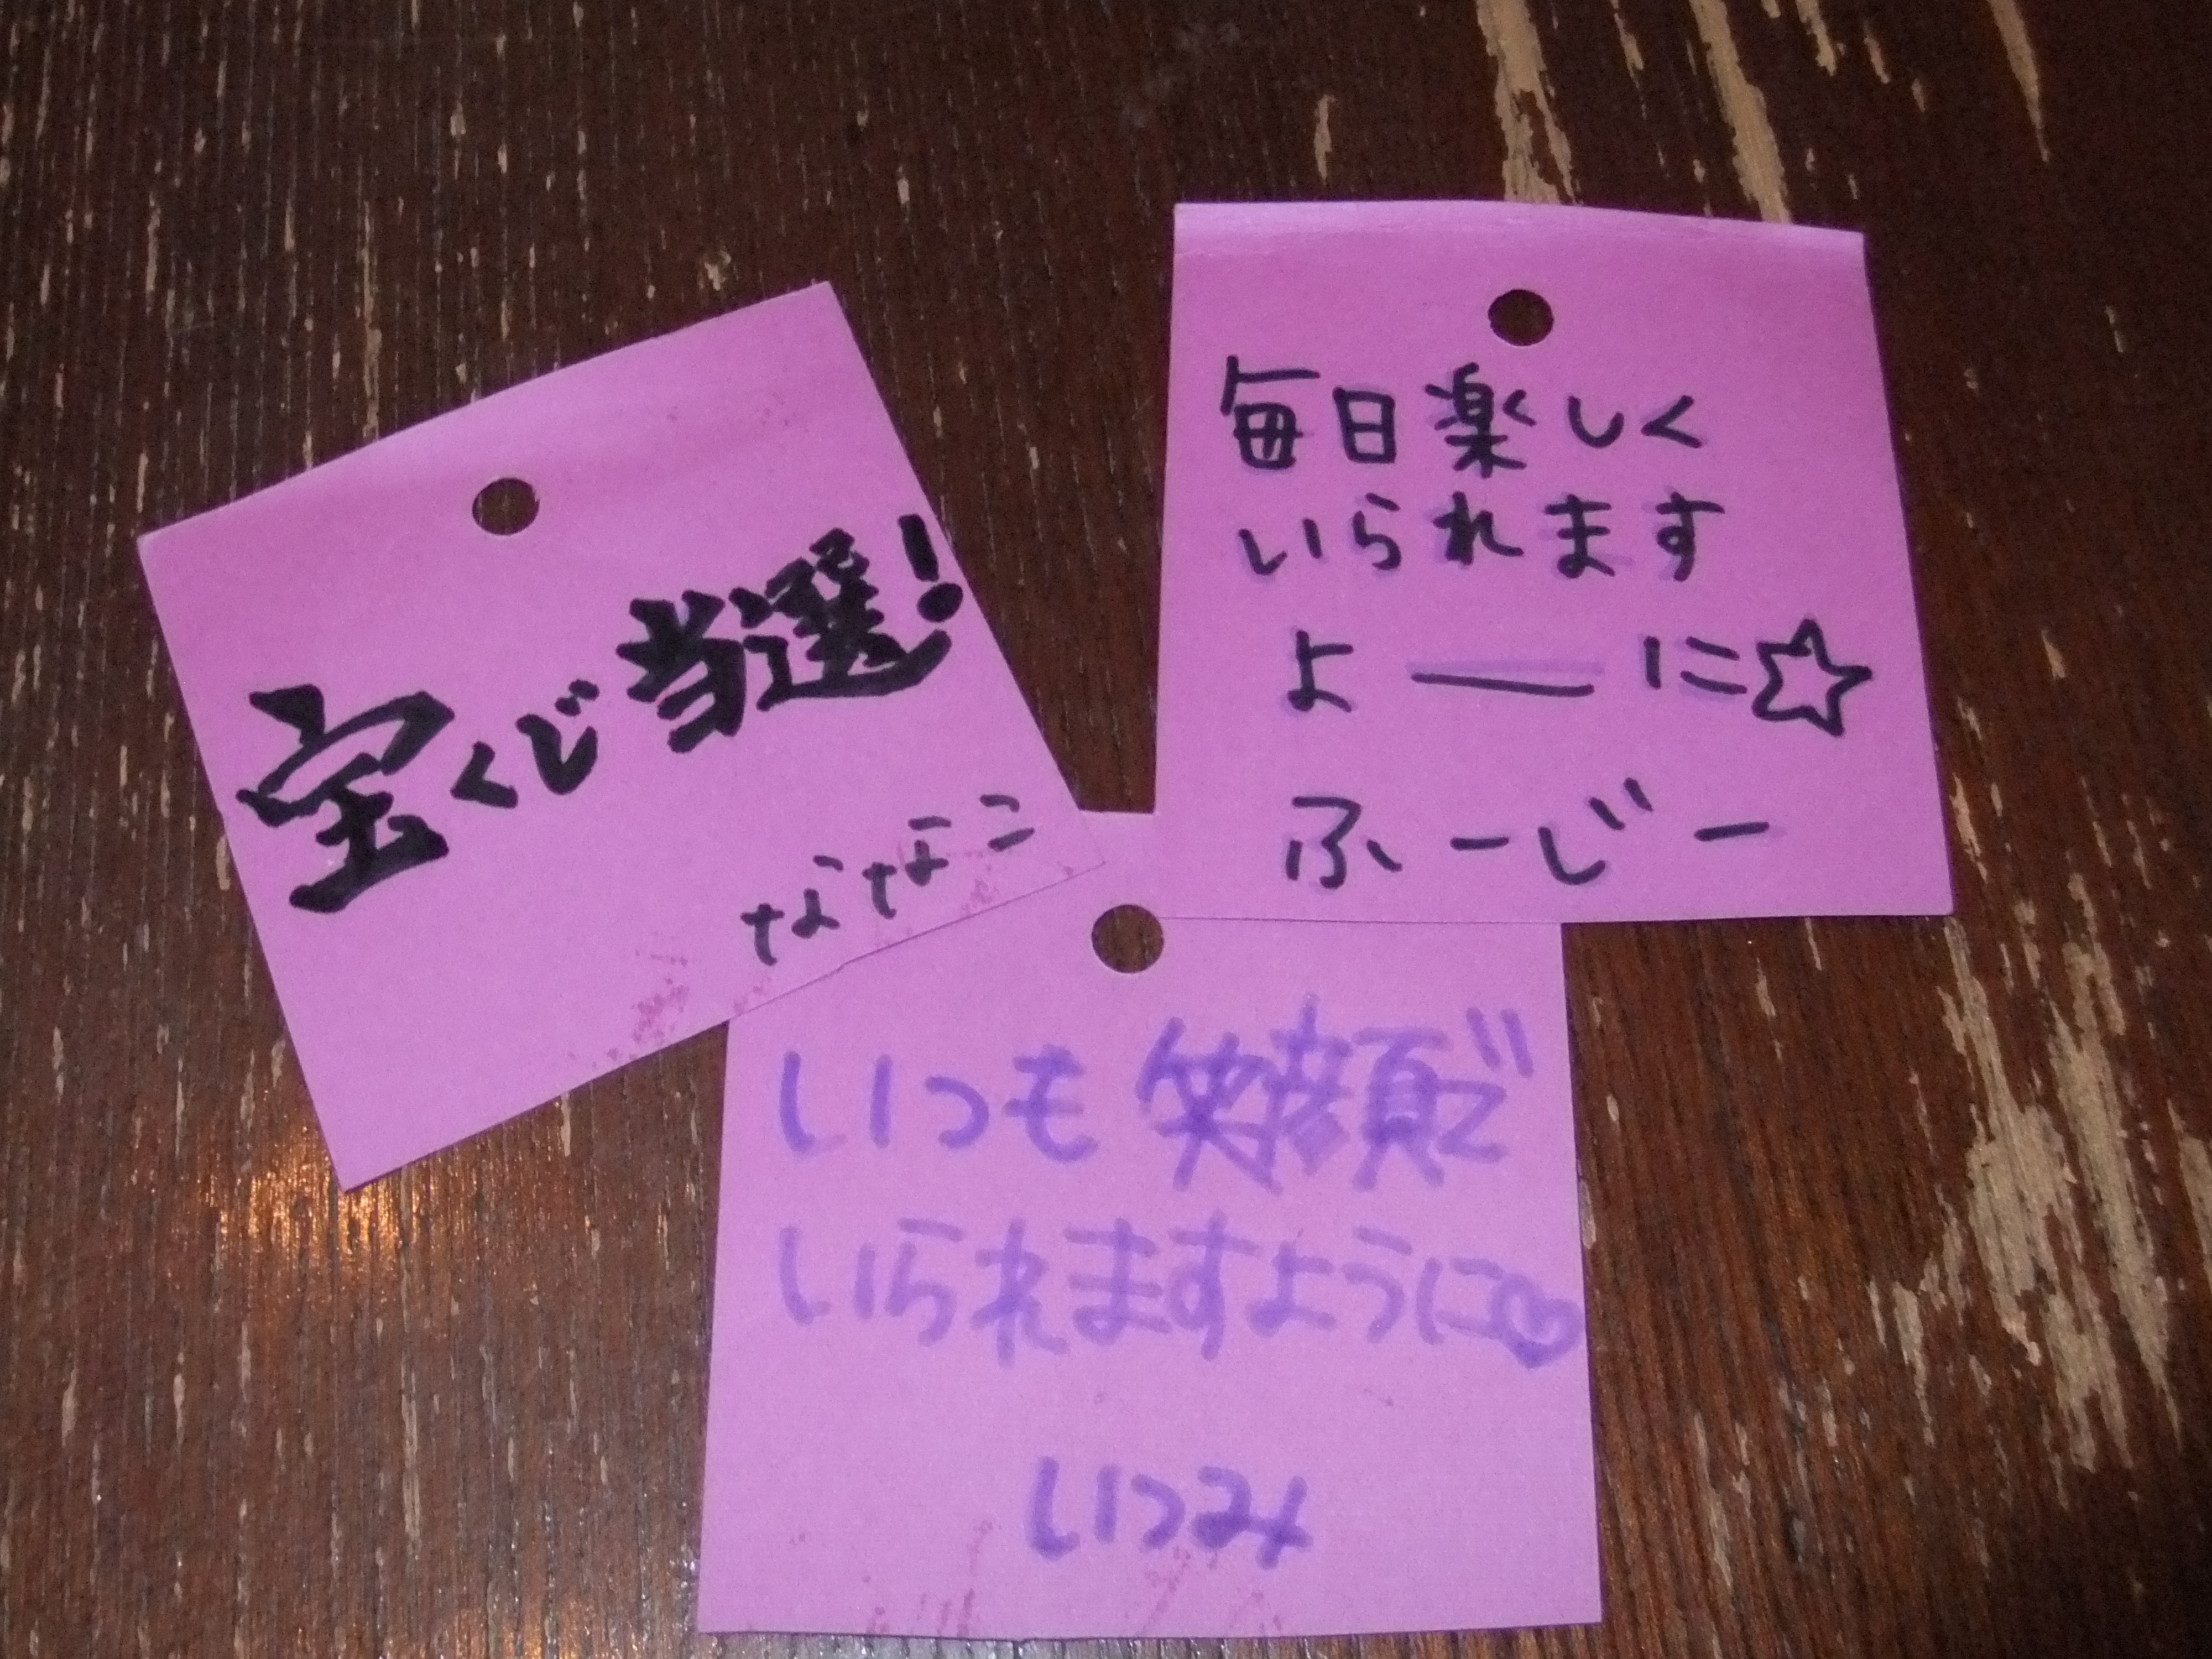 宝くじ当選!
ななこ
毎日楽しく
いられます
よーに☆
ふーじー
いつも笑顔で
いられますように♡
いつみ